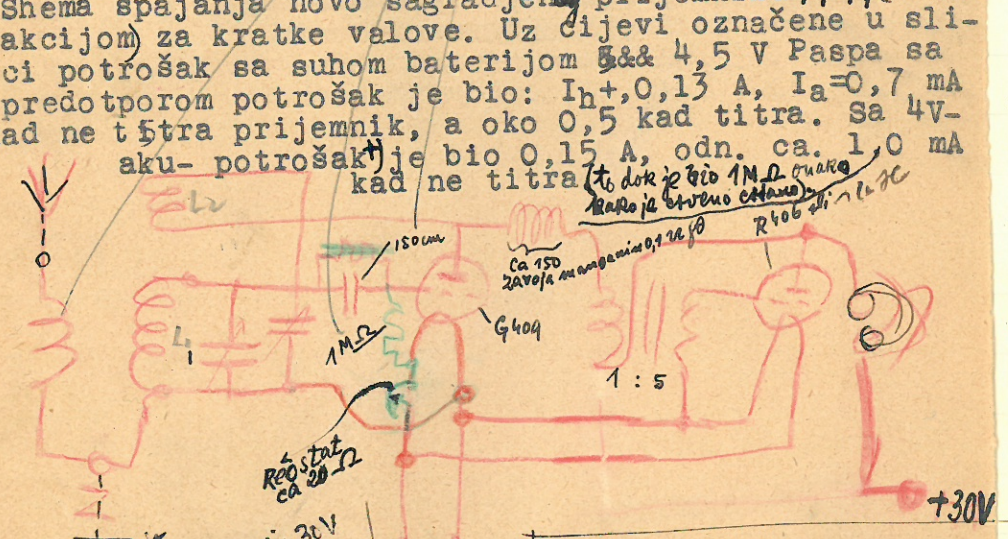 Shema spajanja novo
akcijom) za kratke valove. Uz cijevi označene u sli-
ci potrošak sa suhom baterijom 5&& 4,5 V Paspa sa
predotporom potrošak je bio: Ih+,0,13 A, Ia=0,7 mA
ad ne t5tra prijemnik, a oko 0,5 kad titra. Sa 4V-
aku- potrošak+) je bio 0,15 A, odn. ca. 1,0 mA
kad ne titra (to dok je bio 1MΩ onako
kako je crveno crtano).
L2
150cm
ca 150
zavoja manganin 0,1
R406
G409
L1
1MΩ
1 : 5
Reostat
ca 20 Ω
+30V
30V